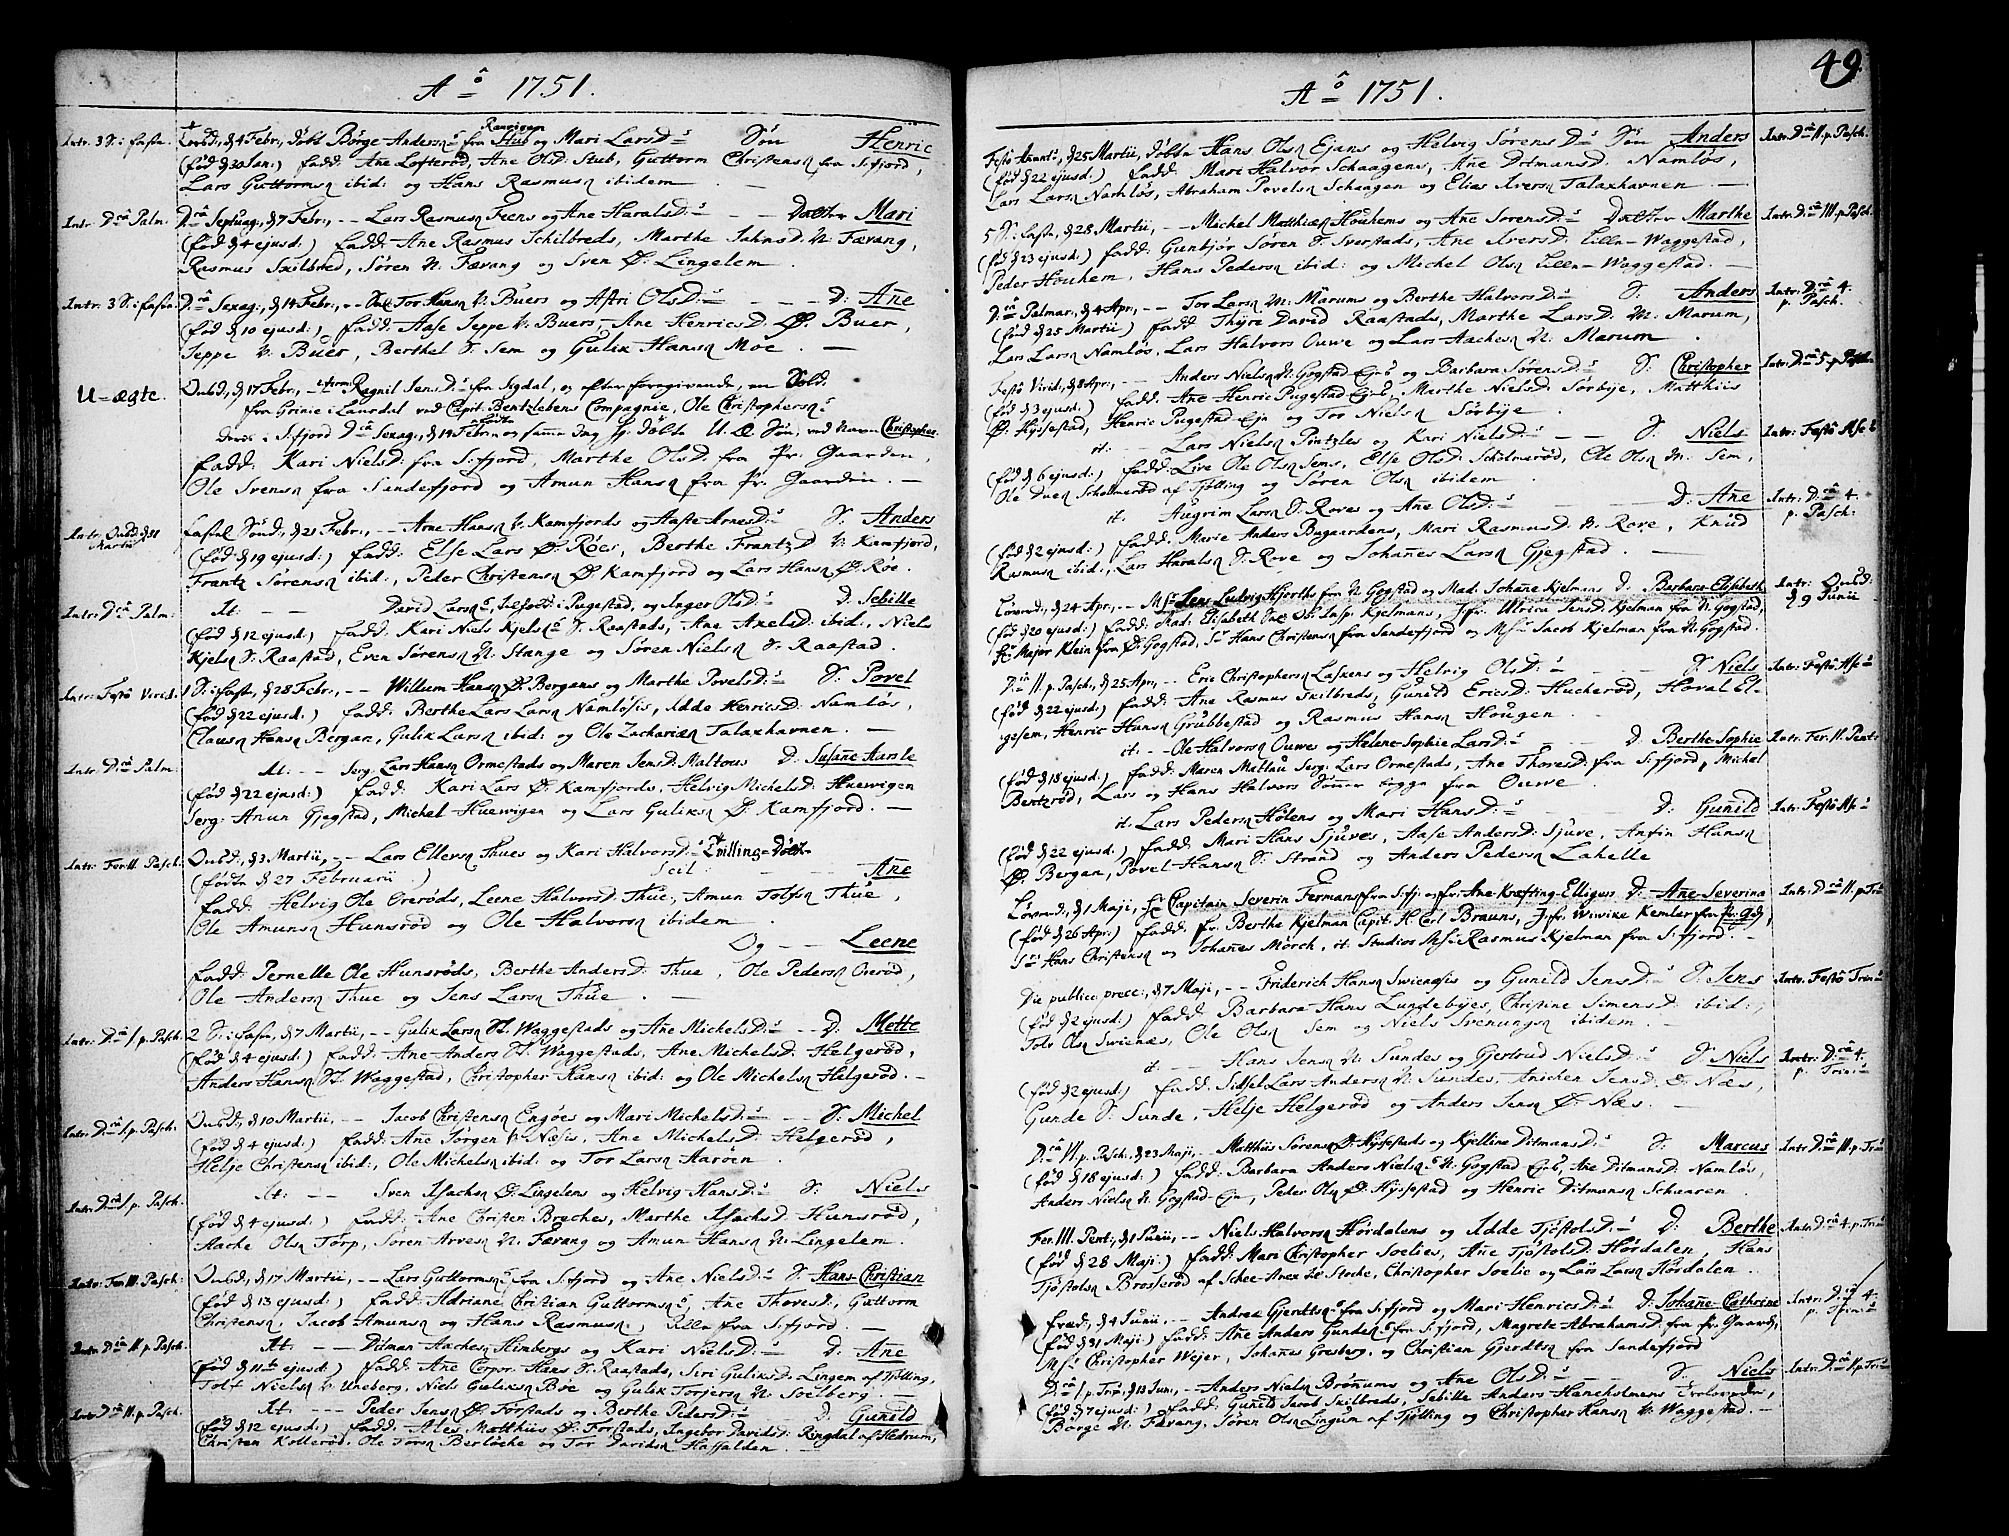 Aô 1751.
Intr. 3 S: i fasta. Onsd, d 4 Febr, döbt Börge Andersn fra Stub og Mari LarsD: Sön Henric
Ranvigen
(född 30 Jan:) fadd: Ane Lofteröd, Ane OlsD: Stub, Guttorm Christensn fra S:fjord,
Lars Guttormsn ibid: og Hans Rasmusn ibidem.
Intr. Dca Palm. Dca Septuag, d 7 Febr, -- Lars Rasmusn Feens og Ane HaralsD: -- Datter Mari
(född 4 ejusd:) fadd: Ane Rasmus Schilbreds, Marthe JahnsD: N: Færang,
Rasmus Skilbred, Sören N: Færang og Sven Ø: Lingelem.
Intr: 3 S: i fasta. Dca Sexag, d 14 Febr, -- Tor Hansn V: Buers og Astri OlsD: -- D: Ane
(född 10 ejusd:) fadd: Aase Jeppe V: Buers, Ane HenricsD: Ø: Buer,
Jeppe V: Buer, Berthel S: Sem og Gulix Hansn Moe.
U-ægte. Onsd, d 17 Febr, Ragnil JensD: fra Sigdal, og efter foregivende, en Sold:
fra Grinie i Laurdal ved Capit: Bentzlebens Compagnie, Ole Christophersn
deres i S:fjord Dca Sexag, d 14 Febr og samme dag hj. döbte U.Æ. Sön, ved navn Christopher
födte
fadd: Kari NielsD: fra S:fjord, Marthe OlsD: fra Pr: Gaarden,
Ole Svensn fra Sandefjord og Amun Hansn fra Pr: Gaarden.
Intr. Onsd d 31 Martii fastel Sönd, d 21 Febr, -- Arne Hansn V: Kamfjords og Aaste ArnesD: S: Anders
(född 19 ejusd:) fadd: Else Lars Ø: Röes, Berthe FrantzD V: Kamfjord,
Frantz Sörensn ibid:, Peder Christensn Ø: Kamfjord og Lars Hansn Ø: Roe.
Intr: Dca Palm: It: -- David Larsn, i Pugestad, og Inger OlsD: D: Sebille
(född 12 ejusd:) fadd: Kari Niels Kjelsn S: Raastads, Ane AxelsD: ibid:, Niels
Kjelsn S: Raastad, Even Sörensn N: Stange og Sören Nielsn S: Raastad.
Intr: Festö Virid: 1 S: i fast, d 28 Febr, -- Willum Hansn Ø: Bergans og Marthe PovelsD: S: Povel
(född 22 ejusd:) fadd: Berthe Lars Larsn Namlösis, Idde HenricsD: Namlös,
Claus Hansn Bergan, Gulix Larsn ibid: og Ole Zachariæn Talaxhavnen.
Intr: Dca Palm: At: -- Serg: Lars Hansn Ormestads og Maren JensD: Maltous D: Susanne Karste
(född 22 ejusd:) fadd: Kari Lars Ø: Kamfjords, Helvig MichelsD: Huewigen
Serg: Anun Gjegstad, Michel Huewigen og Lars Guliksn Ø: Kamfjord.
Intr: Fer: II. Pasch: Onsd, d 3 Martii, -- Lars Ellersn Thues og Kari HalvorsD: Tvilling-Dötre
(födte d 27 Februarii.) Scil: -- Ane
fadd: Helvig Ole Oreröds, Leene HalvorsD: Thue, Amun Tolfsn Thue,
Ole Amunsn Hunsröd og Ole Halvorsn ibidem.
Og -- Leene
fadd: Pernelle Ole Hunsröds, Berthe AndersD: Thue, Ole Pedersn Oreröd,
Ole Andersn Thue og Jens Larsn Thue.
Intr: Dca 1. p. Pasch: 2 S: i fasta, d 7 Martii, -- Gulix Larsn St. Waggestads og Ane MichelsD: -- D: Mette
(född 4 ejusd:) fadd: Ane Anders St: Waggestads, Ane MichelsD: Helgeröd,
Anders Hansn St. Waggestad, Christopher Hansn ibid: og Ole Michelsn Helgeröd.
Intr: Dca 1. p. Pasch: Onsd, d 10 Martii, -- Jacob Christensn Engöes og Mari MichelsD: -- S: Michel
(född 4 ejusd:) fadd: Ane Jörgen V: Næsis, Ane MichelsD: Helgeröd,
Helje Christensn ibid:, Ole Michelsn ibid: og Tor Larsn Haröen
Intr: Dca 1. p. Pasch. At: -- Sven Isachsn Ø: Lingelens og Helvig HansD: S: Niels
(född 4 ejusd:) fadd: Ane Christen Breches, Marthe IsachsD: Hunsröd,
Aache Olsn Torp, Sören Arvesn N: Færang og Amun Hansn N: Lingelem.
Intr: Fer. III. Pasch: Onsd, d 17 Martii, -- Lars Guttormsn fra S:fjord og Ane NielsD: S: Hans Christian
(född 13 ejusd:) fadd: Adriane Christian Guttormsn, Ane ThoresD:, Guttorm
Christensn, Jacob Amunsn og Hans Rasmusn, alle fra S:fjord.
Intr: Dca II. p. Pasch: At: -- Ditman Aachesn Himbergs og Kari NielsD: D: Ane
(född 11te ejusd:) fadd: Ane Corpor: Hans S: Raastads, Siri GuliksD: Lingem af Tjölling,
Tolf Nielsn V: Uneberg, Niels Guliksn Böe og Gulix Torjersn N: Soelberg.
Intr: Dca II. p. Pasch. At: -- Peder Jensn Ø: Forstads og Berthe PedersD: D: Gunild
(född 12 ejusd:) fadd: Ales Matthiis Ø: Forstads, Ingebor DavidsD: Ringdal af Hedrum,
Christen Kolleröd, Ole Torsn Berlöche og Tor Davidsn Hassalden.
Aô 1751.
49
Festö Anunt:, d 25 Martii, döbte Hans Olsn Ejans og Helvig SörensD: Sön Anders Intr: Dca II. p. Pasch.
(född 22 ejusd:) fadd: Mari Halvor Schaagens, Ane DitmansD: Namlös,
Lars Larsn Namlös, Abraham Povelsn Schaagen og Elias Iversn Talaxhavnen.
5 S: i fasta, d 28 Martii, -- Michel Matthiæsn Houhems og Ane SörensD: Datter Marthe Intr: Dca III. p. Pasch.
(född 23 ejusd:) fadd: Gunbjör Sören S: Sverstads, Ane IversD: Lille-Waggestad,
Peder Houhem, Hans Pedersn ibid: og Michel Olsn Lille-Waggestad.
Dca Palmar, d 4 Apr, -- Tor Larsn M: Marums og Berthe HalvorsD: S: Anders Intr: Dca 4. p. Pasch:
(född 25 Martii) fadd: Thyre David Raastads, Marthe LarsD: M: Marum,
Lars Larsn Namlös, Lars Halvors Ouwe og Lars Aachesn N: Marum.
Festö Virid:, d 8 Apr, -- Anders Nielsn N: Gogstad-Ejes og Barbara SörensD: S: Christopher Intr: Dca 5. p. Pasch:
(född 3 ejusd:) fadd: Ane Henric Pugestad-Ejes, Marthe NielsD: Sörbye, Matthiis
Ø: Hyssestad, Henric Pugestad-Eje og Tor Nielsn Sörbije.
it: -- Lars Nielsn Pintzles og Kari NielsD: -- S: Niels Intr: Festö Asc:
(född 6 ejusd:) fadd: Live Ole Olsn Sems, Else OlsD: Scholmeröd, Ole Olsn N: Sem,
Ole Duesn Scholmeröd af Tjölling og Sören Olsn ibidem.
it. Augrim Larsn S: Roves og Ane OlsD: -- D: Ane Intr: Dca 4. p. Pasch:
(född 2 ejusd:) fadd: Marie Anders Bugaardens, Mari RasmusD: N: Rove, Knud
Rasmusn ibid:, Lars Haralsn S: Rove og Johanes Larsn Gjegstad.
Löverd:, d 24 Apr, -- Msr Jens Ludvig Hjorths fra N: Gogstad og Mad: Johane Kjelmans D: Barbara Elisabeth Intr: Onsd: d 9 Junii
(född 20 ejusd:) fadd: Mad: Elisabeth Kjelmans, Jfr: Ulrica JensD: Kjelman fra N: Gogstad,
Hr Major Klein fra Ø: Gogstad, Sr Hans Christensn fra Sandefjord og Msr Jacob Kjelman fra N: Gogstad.
Dca II. p. Pasch, d 25 Apr, -- Eric Christophersn Laskens og Helvig OlsD: -- S: Niels Intr: Festö Asc:
(född 22 ejusd:) fadd: Ane Rasmus Skilbreds, Gunild EricsD: Hucheröd, Hoval El-
gesem, Henric Hansn Grubbestad og Rasmus Hansn Hougen.
it. -- Ole Halvorsn Ouwes og Helene-Sophie LarsD: -- D: Berthe Sophie Intr: Fer: II. Pent:
(född 18 ejusd:) fadd: Maren Maltau Serg: Lars Ormestads, Ane ThoresD: fra S:fjord, Michel
Bentzröd, Lars og Hans Halvors Sönner begge fra Ouwe.
it. Lars Pedersn Hölens og Mari HansD: D: Gunild Intr: Festö Asc:
(född 22 ejusd:) fadd: Mari Hans Sjuves, Aase AndersD: Sjuve, Anfin Hansn
Ø: Bergan, Povel Hansn S: Strand og Anders Pedersn Lahelle
Löverd:, d 1 Maji, Hr Capitain Severin Fermans fra S:fj: og fr: Ane Kræfting-Elligers D: Ane-Severina Intr: Dca II. p. Tri:
(född 26 Apr:) fadd: fr: Berthe Kjelman Capit: H: Carl Brauns, Jfr: Wiwike Kemler fra Pr: Gd,
Sr Hans Christensn og Johanes Mörch, it. Studios: Msr Rasmus Kjelman fra S:fjord.
Die public: prec:, d 7 Maji, -- Friderich Hansn Swienæsis og Gunild JensD: S: Jens Intr: Festö Trin:
(född 2 ejusd:) fadd: Barbara Hans Lundebyes, Christine SimensD: ibid:,
Tolv Olsn Swienæs, Ole Olsn Sem og Niels Svenungsn ibidem.
it: -- Hans Jensn N: Sundes og Gjertrud NielsD: S: Niels Intr: Dca 4. p. Trin:
(född 2 ejusd:) fadd: Sidsel Lars Andersn N: Sundes, Anichen JensD: Ø: Næs,
Gunde S: Sunde, Helje Helgeröd og Anders Jensn Ø: Næs.
Dca VI. p. Pasch:, d 23 Maji, -- Matthiis Sörensn Ø: Hyssestads og Kjelline DitmansD: S: Marcus Intr: Dca II. p. Tri:
(född 18 ejusd:) fadd: Barbara Anders Nielsn N: Gogstad-Ejes, Ane DitmansD: Namlös,
Anders Nielsn N: Gogstad-Eje, Peder Olsn Ø: Hyssestad og Henric Ditmansn Schaaren.
Fer. III. Pent:, d 1 Junii, -- Niels Halvorsn Hördalens og Idde TjöstolsD: D: Berthe Intr: Dca 4. p. Tri:
(född 28 Maji:) fadd: Mari Christopher Soelies, Ane TjöstolsD: Hördalen, Hans
Tjöstolsn Bresseröd af Schee-Anex til Stoche, Christopher Soelie og Lars Larsn Hördalen.
fred:, d 4 Junii, -- Andreas Gjerdtsn fra S:fjord og Mari HenricsD: D: Johane-Cathrine Intr: Dca 4. p. Trin:
(född 31 Maji:) fadd: Ane Anders Gundesn fra S:fjord, Magrete AbrahamsD: fra Pr: Gaard,
Msr Christopher Wejer, Johanes Gresberg, og Christian Gjerdtsn fra Sandefjord
Dca 1. p. Trin:, d 13 Jun:, -- Anders Nielsn Brönums og Ane OlsD: -- S: Niels Intr: Dca II. p. Tri:
(född 7 ejusd:) fadd: Gunild Jacob Skilbreds, Sebille Anders Haneholmens,
Börge N: Færang, Sören Olsn Lingum af Tjölling og Christopher Hansn N: Waggestad.